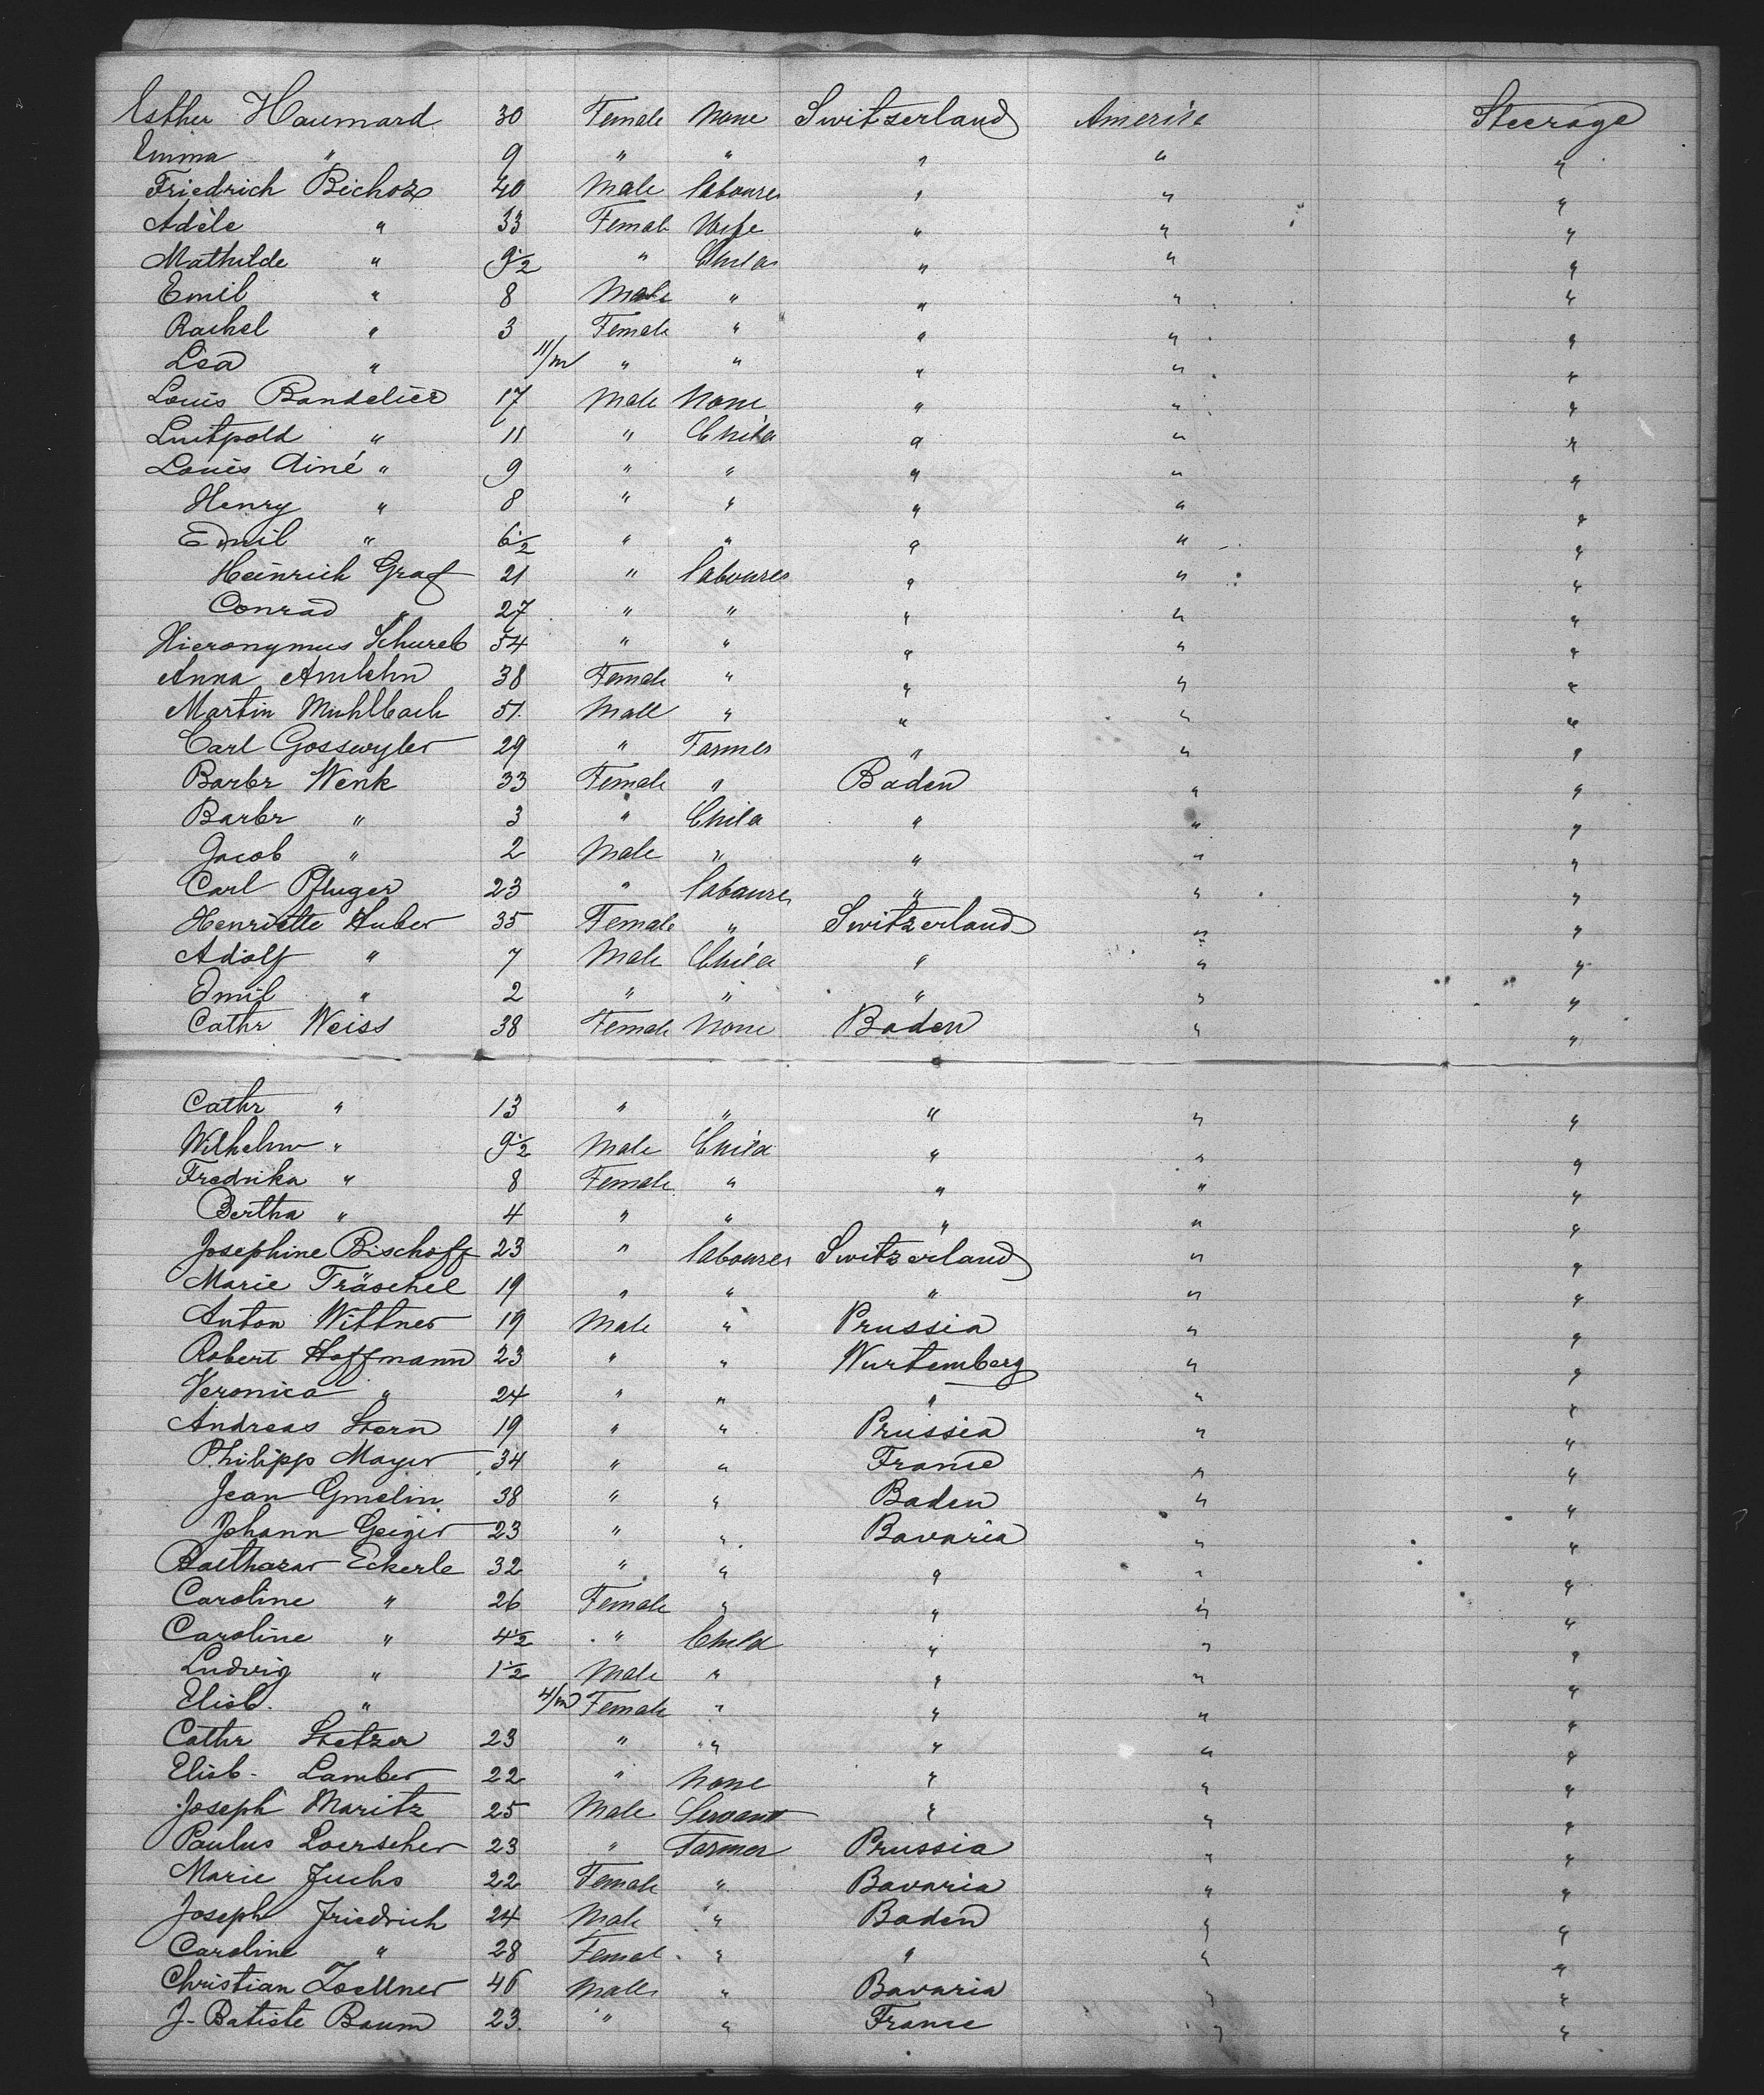 Esther Haumard 30 Female None Switzerland America Steerage
Emma " 9 " " " " "
Friedrich Bichox 40 Male labourer " " "
Adèle " 33 Female Wife " " "
Mathilde " 9 1/2 " Child " " "
Emil " 8 Male " " " "
Rachel " 3 Female " " " "
Lea " 11/m " " " " "
Louis Bandelier 17 Male None " " "
Luitpold " 11 " Child " " "
Louis Ainé " 9 " " " " "
Henry " 8 " " " " "
Emil " 6 1/2 " " " " "
Heinrich Graf 21 " labourer " " "
Conrad " 27 " " " " "
Hieronymus Schureb 54 " " " " "
Anna Amlehn 38 Female " " " "
Martin Muhlbach 51. Male " " " "
Carl Gosswyler 29 " Farmer " " "
Barbr Wenk 33 Female " Baden " "
Barbr " 3 " Child " " "
Jacob " 2 Male " " " "
Carl Pfluger 23 " labourer " " "
Henriette Huber 35 Female " Switzerland " "
Adolf " 7 Male Child " " "
Emil " 2 " " " " "
Cathr Weiss 38 Female None Baden " "
Cathr " 13 " " " " "
Wilhelm " 9 1/2 Male Child " " "
Fredrika " 8 Female " " " "
Bertha " 4 " " " " "
Josephine Bischoff 23 " labourer Switzerland " "
Marie Träschel 19 " " " " "
Anton Wittner 19 Male " Prussia " "
Robert Hoffmann 23 " " Wurtemberg " "
Veronica " 24 " " " " "
Andreas Stern 19 " " Prussia " "
Philipp Mayer 34 " " France " "
Jean Gmelin 38 " " Baden " "
Johann Geiger 23 " " Bavaria " "
Balthasar Eckerle 32 " " " " "
Caroline " 26 Female " " " "
Caroline " 4 1/2 " Child " " "
Ludwig " 1 1/2 Male " " " "
Elisb. " 4/m Female " " " "
Cathr Stetzer 23 " " " " "
Elisb. Lamber 22 " None " " "
Joseph Maritz 25 Male Servant " " "
Paulus Loerscher 23 " Farmer Prussia " "
Marie Fuchs 22 Female " Bavaria " "
Joseph Friedrich 24 Male " Baden " "
Caroline " 28 Female " " " "
Christian Zoellner 46 Male " Bavaria " "
J. Batiste Baum 23. " " France " "